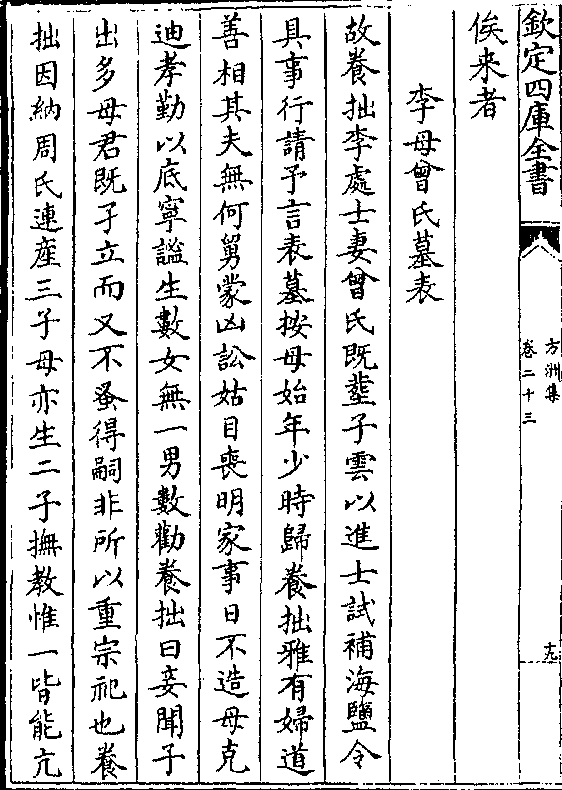 欽定四庫全書
方洲集
卷二十三
十九
俟来者
李母曾氏墓表
故養拙李處士妻曾氏既塟子雲以進士試補海鹽令
具事行請予言表墓按母始年少時歸養拙雅有婦道
善相其夫無何舅蒙凶訟姑目喪明家事日不造母克
迪孝勤以底寧謐生數女無一男數勸養拙曰妾聞子
出多母君既孑立而又不蚤得嗣非所以重宗祀也養
拙因納周氏連産三子母亦生二子撫教惟一皆能亢